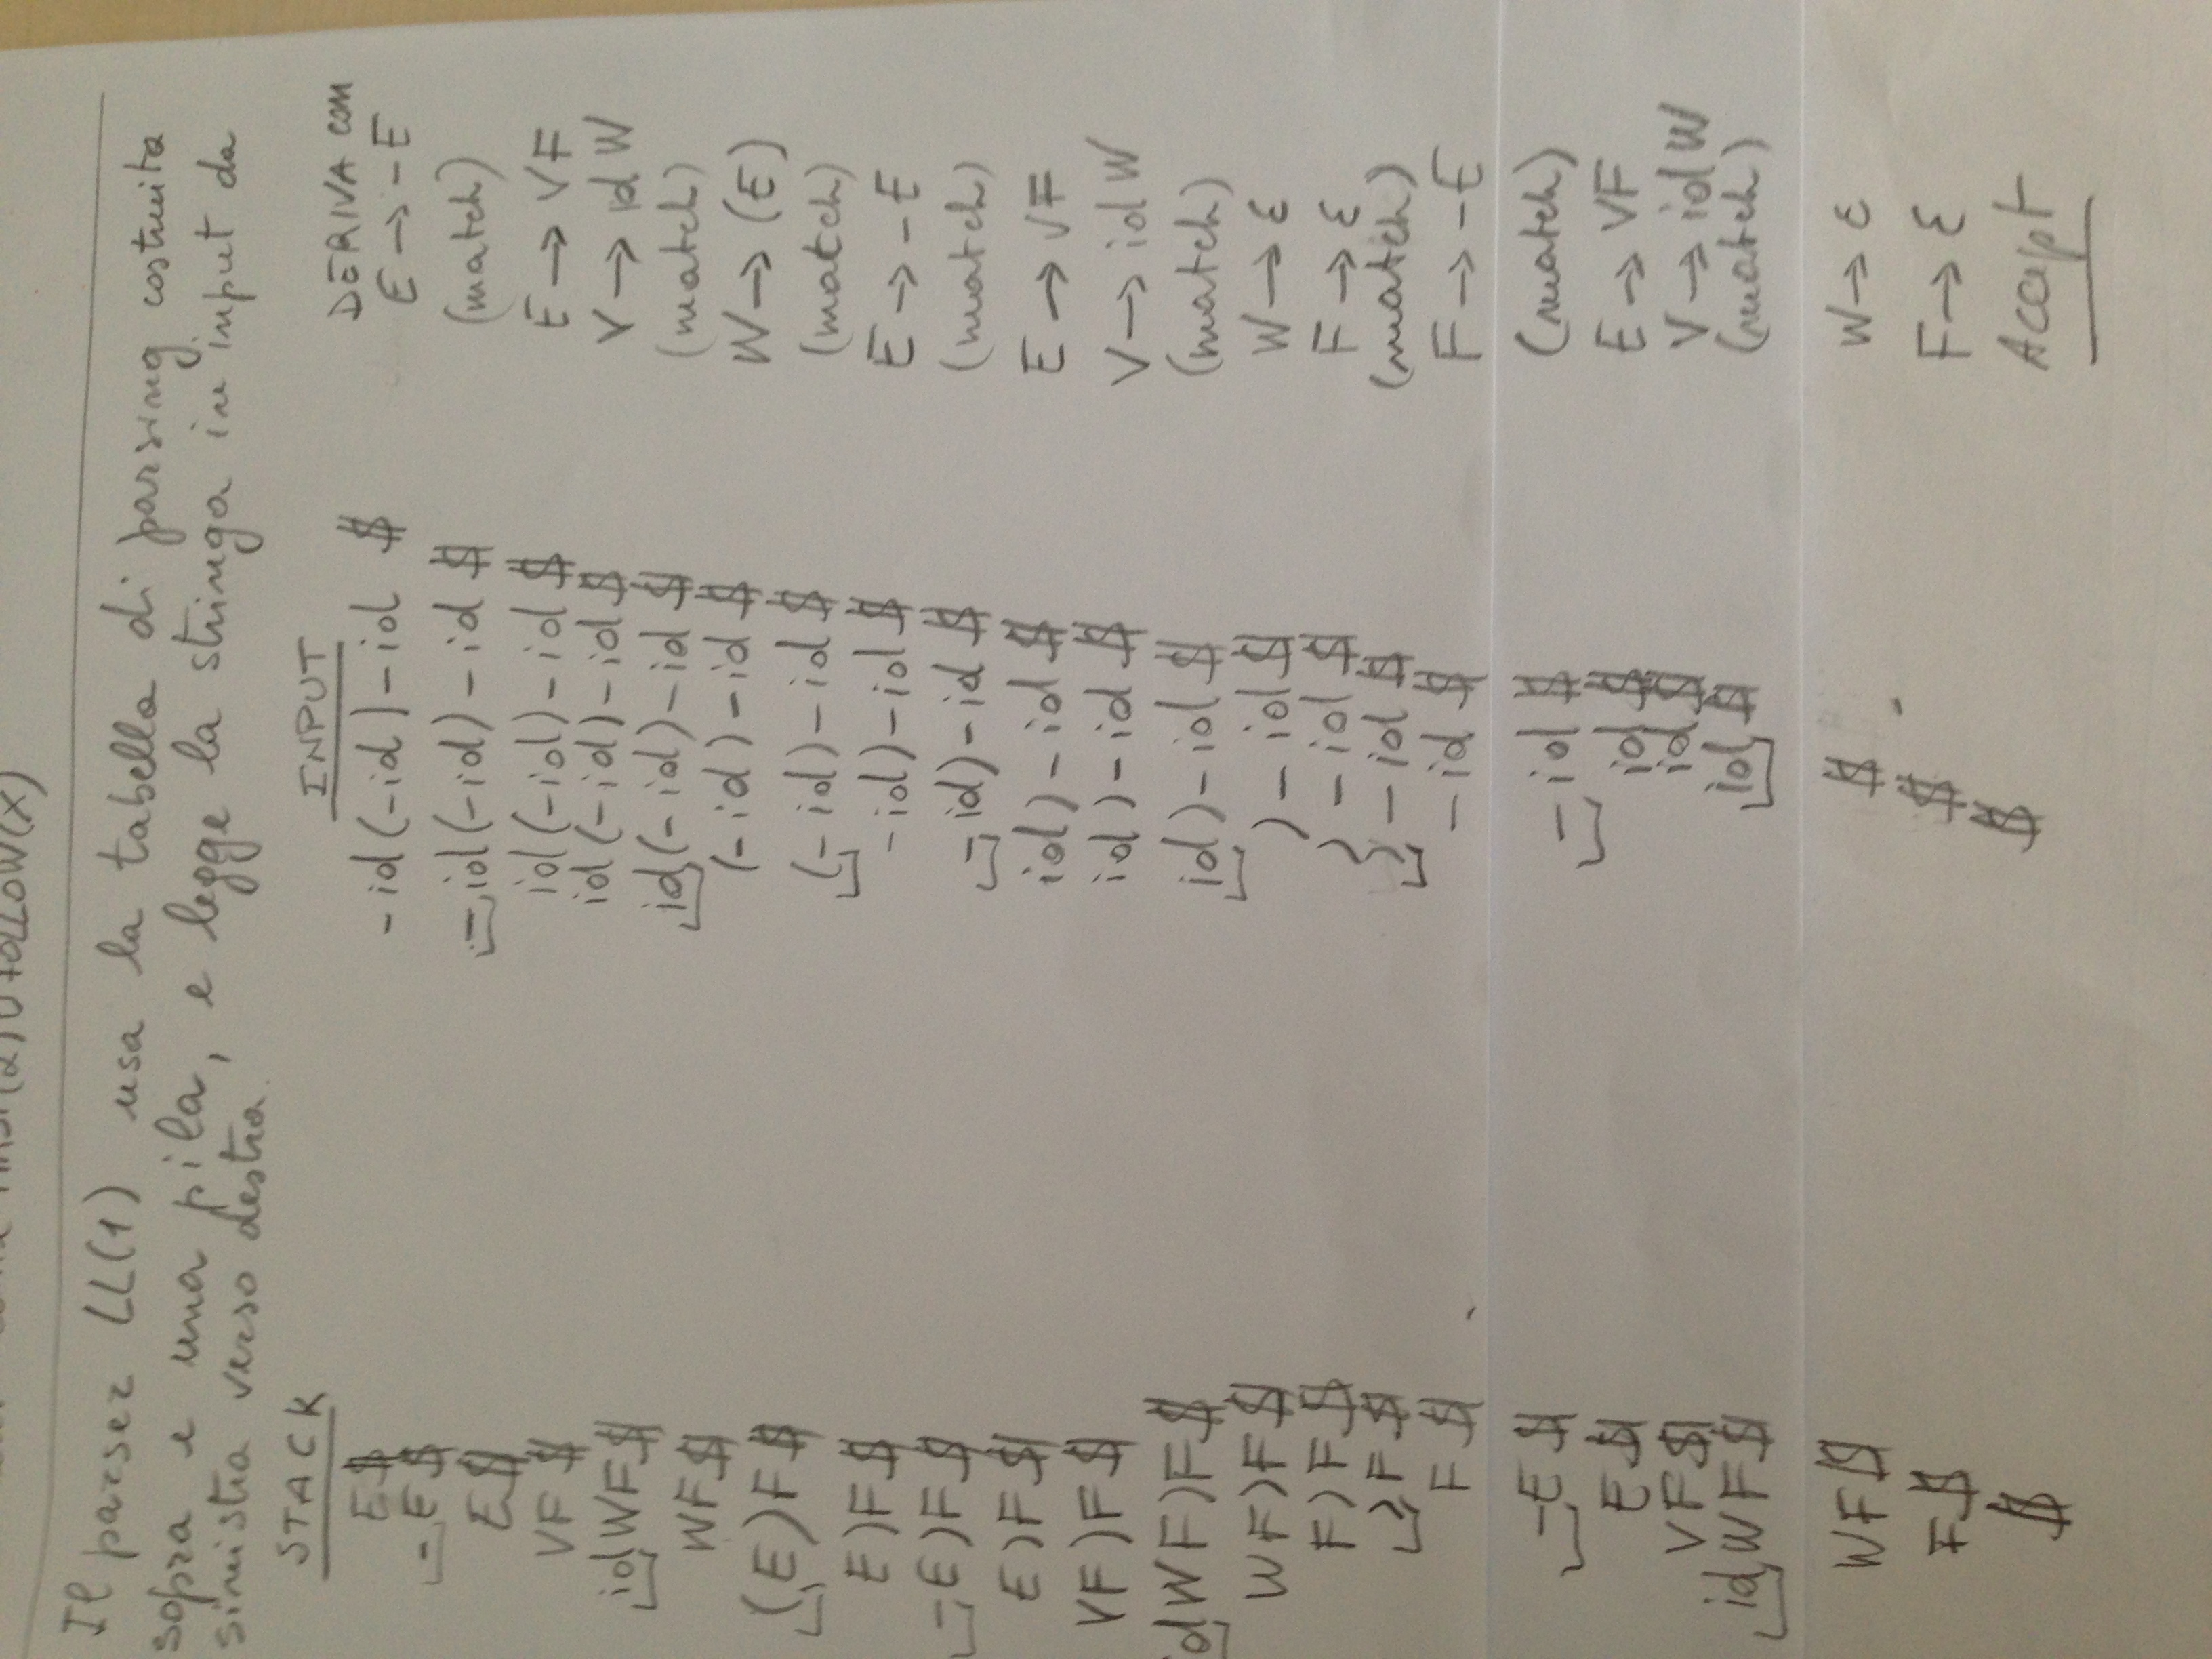 FIRST(α) ∪ FOLLOW(X)
Il parser LL(1) usa la tabella di parsing costruita
sopra e una pila, e legge la stringa in input da
sinistra verso destra.
STACK INPUT DERIVA con
E$ -id(-id)-id $ E → -E
-E$ -id(-id)-id $ (match)
E$ id(-id)-id $ E → VF
VF $ id(-id)-id $ V → id W
idWF$ id(-id)-id $ (match)
WF$ (-id)-id $ W → (E)
(E)F$ (-id)-id $ (match)
E)F$ -id)-id $ E → -E
-E)F$ -id)-id $ (match)
E)F$ id)-id $ E → VF
VF)F$ id)-id $ V → id W
idWF)F$ id)-id $ (match)
WF)F$ )-id $ W → ε
F)F$ )-id $ F → ε
)F$ )-id $ (match)
F$ -id $ F → -E
-E$ -id $ (match)
E$ id $ E → VF
VF$ id $ V → id W
idWF$ id $ (match)
WF$ $ W → ε
F$ $ F → ε
$ $ Accept